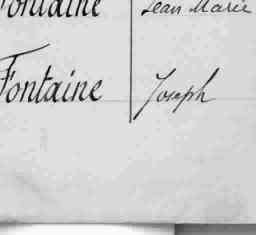 Fontaine Jean Marie
Fontaine Joseph